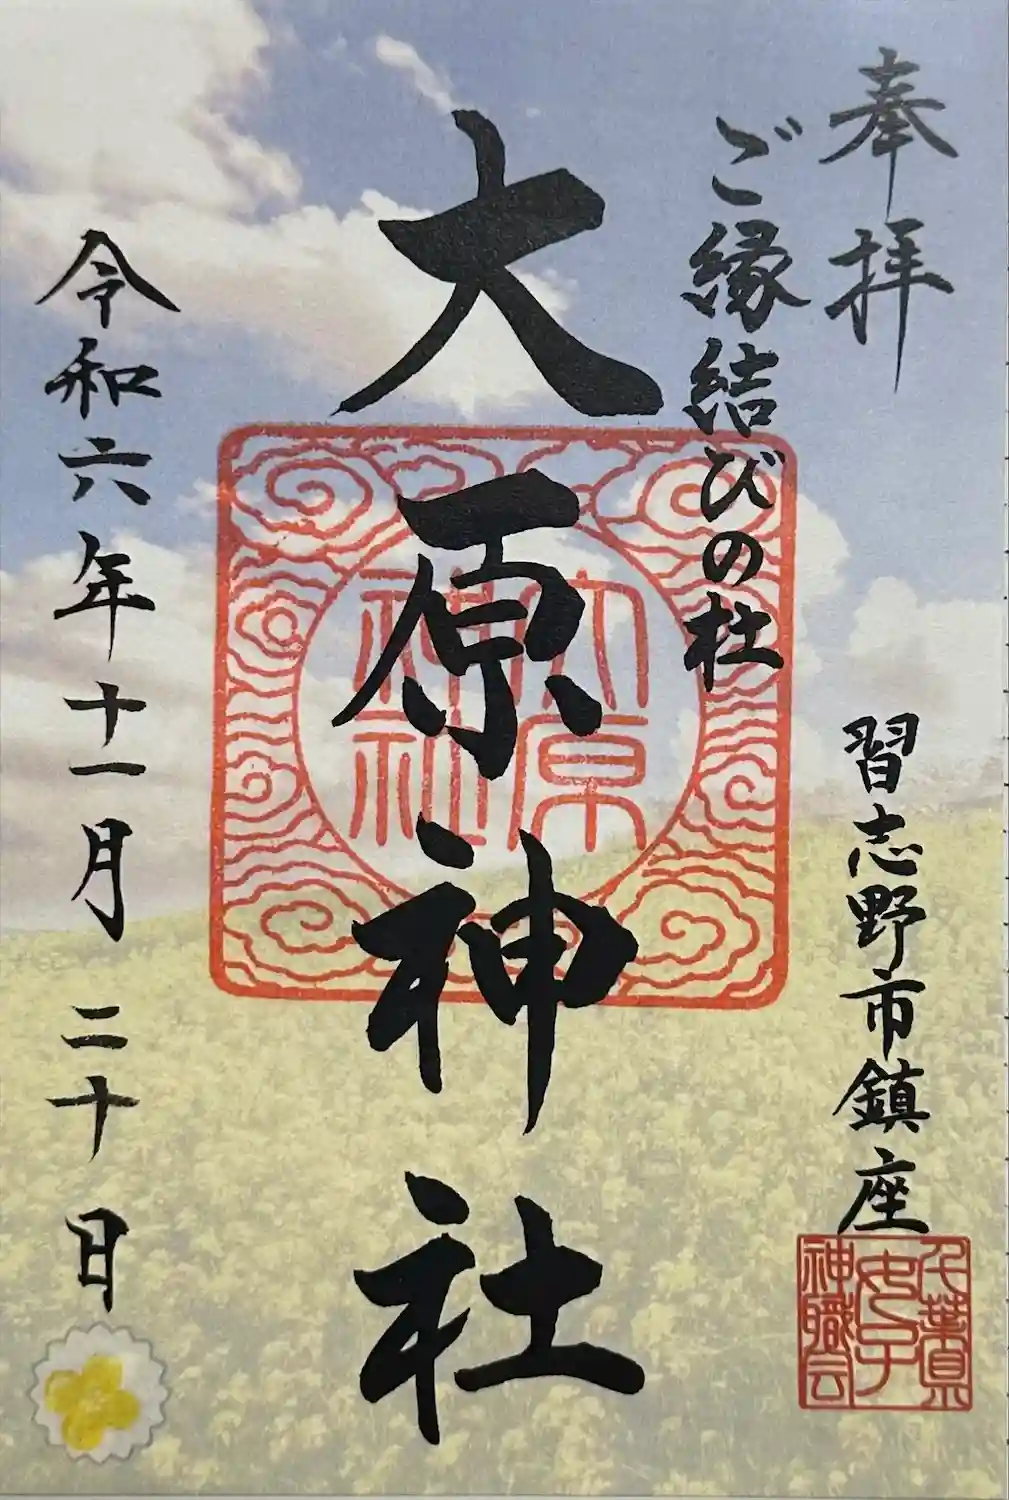 奉拝
ご縁結びの杜
習志野市鎮座
大原神社
大原
神社
令和六年十一月二十日
千葉県
女子
神職会